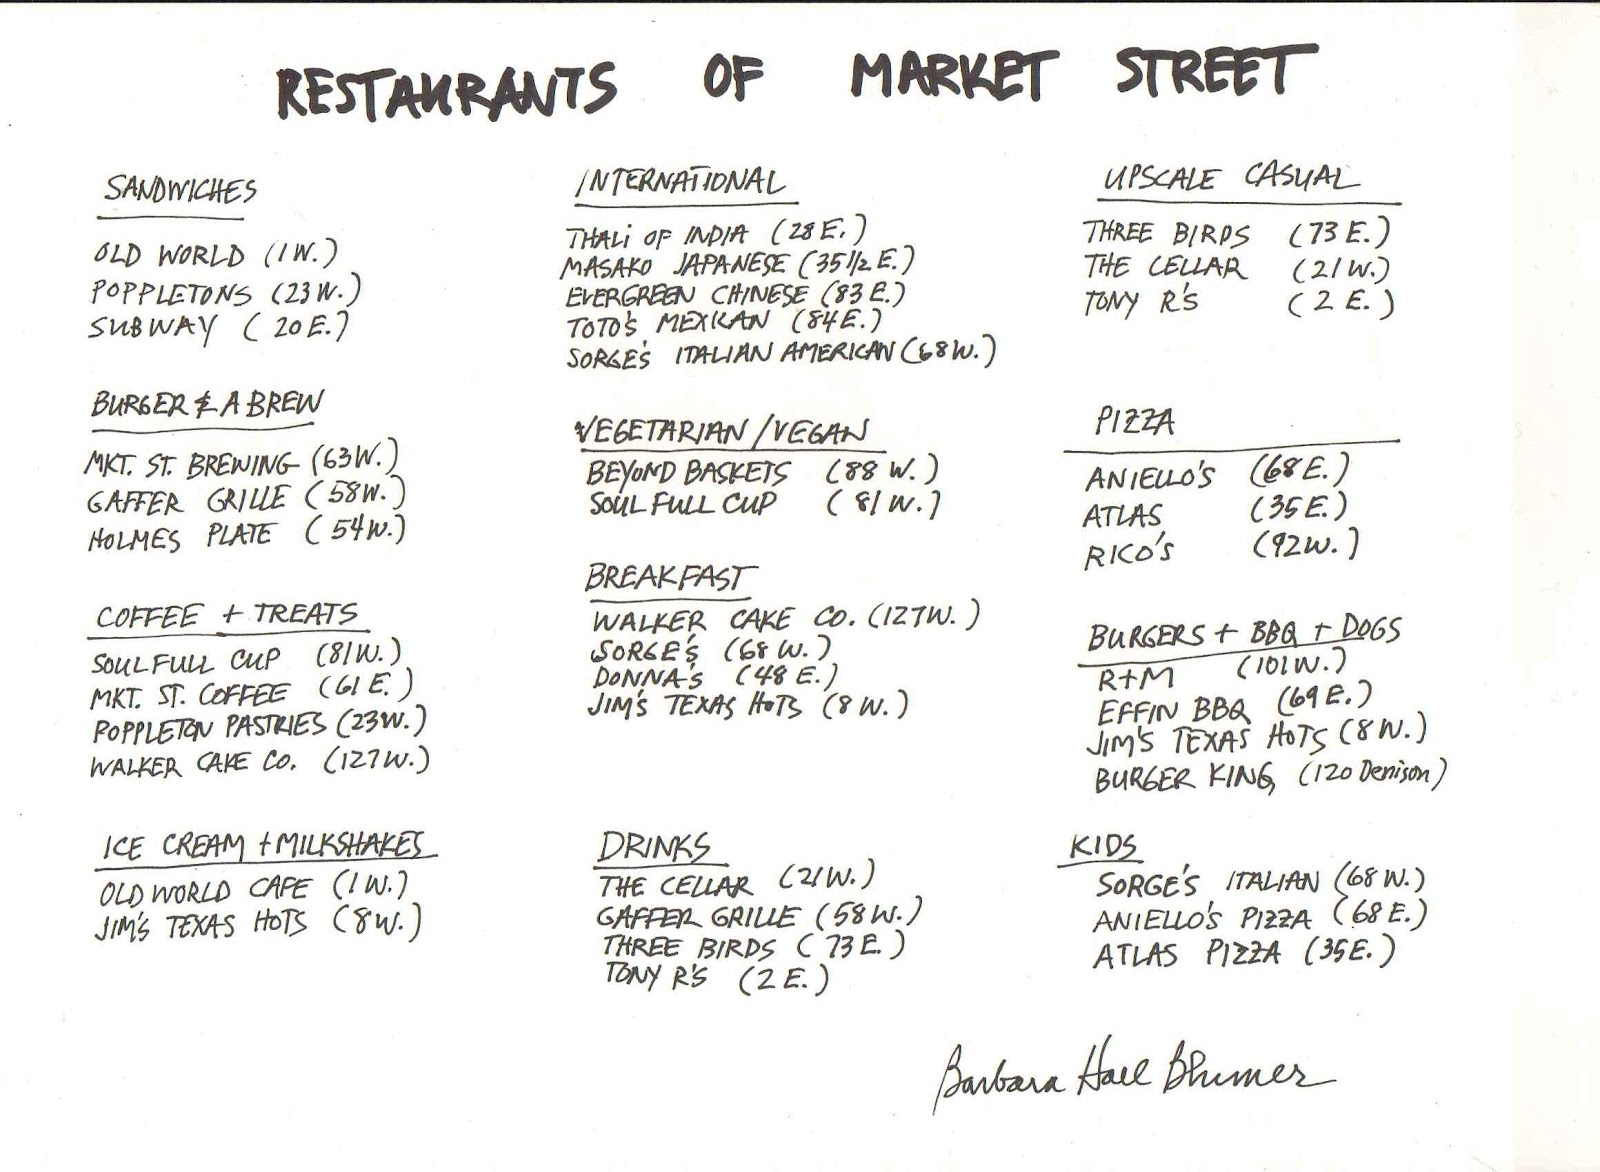 RESTAURANTS OF MARKET STREET
SANDWICHES
OLD WORLD (1 W.)
POPPLETONS (23 W.)
SUBWAY (20 E.)
BURGER & A BREW
MKT. ST. BREWING (63 W.)
GAFFER GRILLE (58 W.)
HOLMES PLATE (54 W.)
COFFEE + TREATS
SOUL FULL CUP (81 W.)
MKT. ST. COFFEE (61 E.)
POPPLETON PASTRIES (23 W.)
WALKER CAKE CO. (127 W.)
ICE CREAM + MILKSHAKES
OLD WORLD CAFE (1 W.)
JIM'S TEXAS HOTS (8 W.)
INTERNATIONAL
THALI OF INDIA (28 E.)
MASAKO JAPANESE (35 1/2 E.)
EVERGREEN CHINESE (83 E.)
TOTO'S MEXICAN (84 E.)
SORGE'S ITALIAN AMERICAN (68 W.)
VEGETARIAN / VEGAN
BEYOND BASKETS (88 W.)
SOUL FULL CUP (81 W.)
BREAKFAST
WALKER CAKE CO. (127 W.)
SORGE'S (68 W.)
DONNA'S (48 E.)
JIM'S TEXAS HOTS (8 W.)
DRINKS
THE CELLAR (21 W.)
GAFFER GRILLE (58 W.)
THREE BIRDS (73 E.)
TONY R'S (2 E.)
UPSCALE CASUAL
THREE BIRDS (73 E.)
THE CELLAR (21 W.)
TONY R'S (2 E.)
PIZZA
ANIELLO'S (68 E.)
ATLAS (35 E.)
RICO'S (92 W.)
BURGERS + BBQ + DOGS
R+M (101 W.)
EFFIN BBQ (69 E.)
JIM'S TEXAS HOTS (8 W.)
BURGER KING, (120 Denison)
KIDS
SORGE'S ITALIAN (68 W.)
ANIELLO'S PIZZA (68 E.)
ATLAS PIZZA (35 E.)
Barbara Hall Blumer